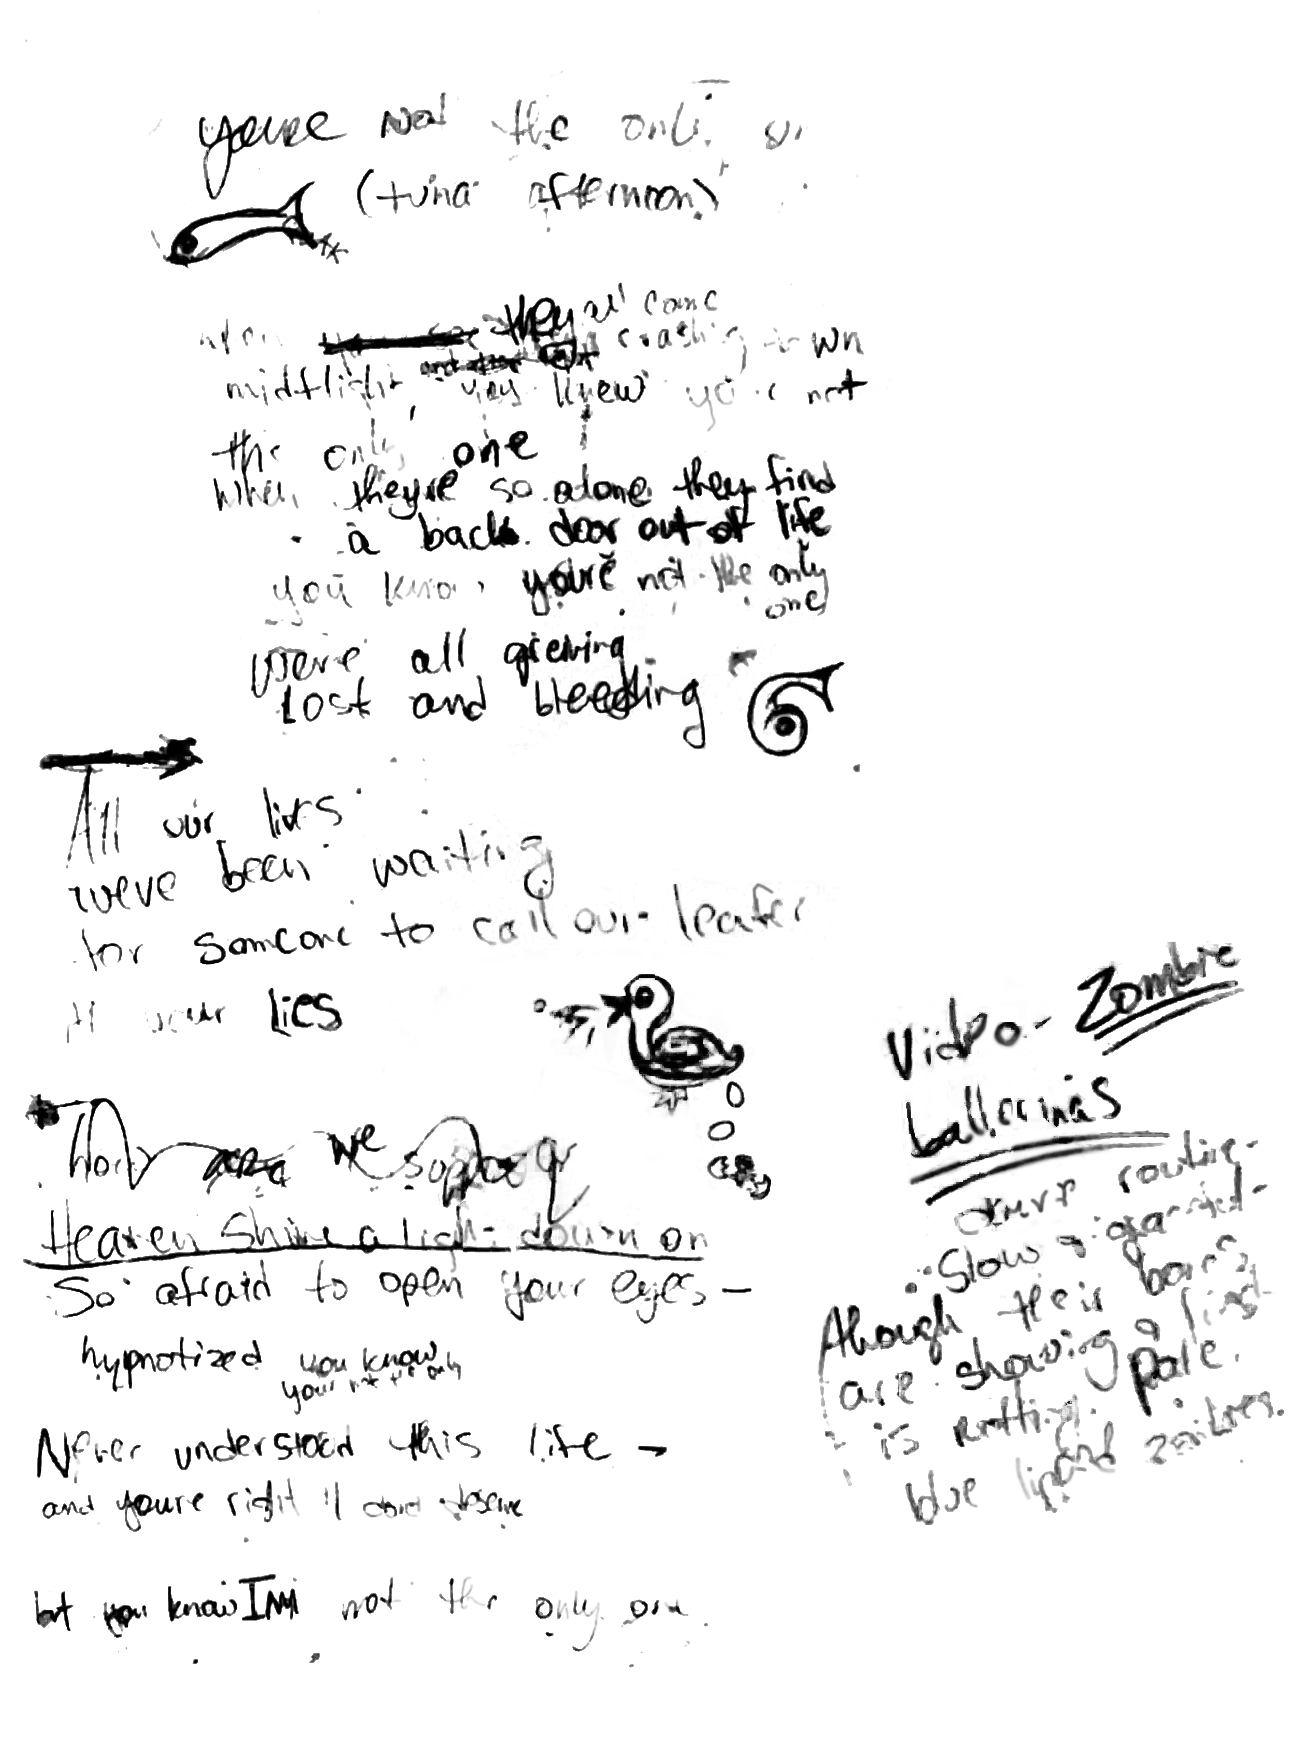 youre not the only
(tuna afternoon)
they all come
crashing down
midflight, you know you're not
the only one
when theyre so alone they find
a back door out of life
you know youre not the only
one
we're all grieving
Lost and bleeding
All our lives
weve been waiting
for someone to call our leader
All your Lies
we
Heaven Shine a light down on
So afraid to open your eyes -
hypnotized you know
your not the only
Never understood this life →
and youre right I dont deserve
but you know Im not the only one
Video - Zombie
ballerinas
routine -
Slow
Although their bones
are showing
is rotting. pale.
blue lips and